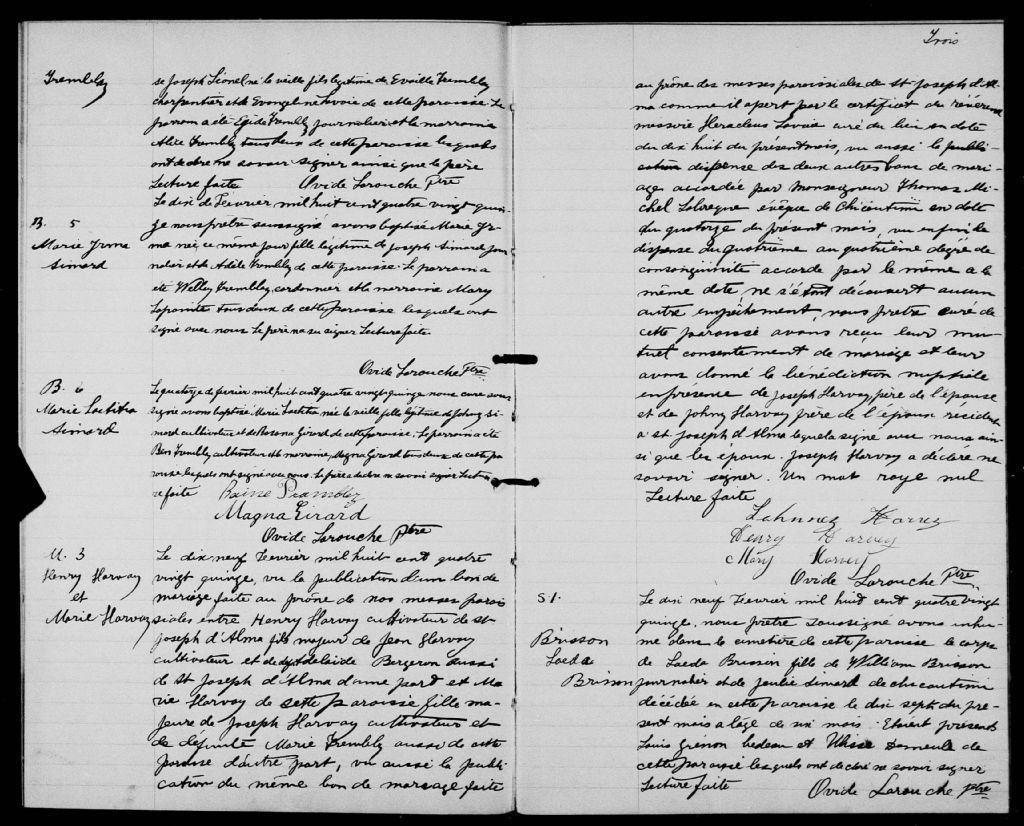 Trembley
se Joseph Lionel né la veille fils légitime de Evaille Trembley
charpentier et de Evangel Lavoie de cette paroisse. Le
parrain a été Egide Trembly journalier et la marraine
Alice Trembly tous deux de cette paroisse lesquels
ont déclaré ne savoir signer ainsi que le père
Lecture faite Ovide Larouche Ptre
B. 5
Marie Irma
Simard
Le dix de Février mil huit cent quatre vingt quin-
ze nous prêtre soussigné avons baptisé Marie Ir-
ma née ce même jour fille légitime de Joseph Simard jour
nalier et de Adèle Trembly de cette paroisse. Le parrain a
été Willey Trembley, cordonnier et la marraine Mary
Lapointe tous deux de cette paroisse lesquels ont
signé avec nous. Le père n'a su signer Lecture faite.
Ovide Larouche Ptre
B. 6
Marie Laetitia
Simard
Le quatorze de février mil huit cent quatre vingt quinze nous curé sous
signé avons baptisé Marie Laetitia née la veille fille légitime de Johny Si-
mard cultivateur et de Rosana Girard de cette paroisse. Le parrain a été
Ben Trembly cultivateur et la marraine, Magna Girard tous deux de cette pa-
roisse lesquels ont signé avec nous. Le père a declaré ne savoir signer Lectu-
re faite
Magna Girard
Ovide Larouche Ptre
M. 3
Henry Harvay
et
Marie Harvay
Le dix neuf Fevrier mil huit cent quatre
vingt quinze, vu la publication d'un ban de
mariage faite au prône de nos messes parois
siales entre Henry Harvay cultivateur de st-
joseph d'Alma fils majeur de Jean Harvay
cultivateur et de dft Adelaide Bergeron aussi
de st Joseph d'Alma d'une part et Ma
rie Harvay de cette paroisse fille ma-
jeure de Joseph Harvay cultivateur et
de défunte Marie Trembly aussi de cette
paroisse d'autre part, vu aussi la publi
cation du même ban de mariage faite
Trois
au prône des messes paroissiales de st-Joseph d'Al-
ma comme il apert par le certificat du révérend
messire Heracleus Lavoie curé du lieu en date
du dix huit du présent mois, vu aussi la publi-
cation dispense des deux autres bans de mari-
age accordée par Monseigneur Thomas Mi-
chel Labreque évêque de Chicoutimi en date
du quatorze du présent mois, vu enfin la
dispense du quatrième au quatrième degré de
consanguinité accorde par le même a la
même date ne s'étant découvert aucun
autre empêchement, nous prêtre curé de
cette paroisse avons reçu leur mu-
tuel consentement de mariage et leur
avons donné la bénédiction nuptiale
en présence de Joseph Harvay, père de l'épouse
et de Johny Harvay frère de l'époux résident
a st Joseph d'Alma lequel a signé avec nous ain-
si que les époux. Joseph Harvay a déclaré ne
savoir signer. Un mot rayé nul
Lecture faite
Henry Harvey
Mary Harvey
Ovide Larouche Ptre
S 1.
Brisson
Laeda
Brisson
Le dix neuf Fevrier mil huit cent quatre vingt
quinze, nous prêtre soussigné avons inhu-
mé dans le cimetière de cette paroisse le corps
de Laeda Brisson fille de William Brisson
journalier et de Julie Simard de chicoutimi
décédée en cette paroisse le dix sept du pré-
sent mois a l'age de six mois. Etaient présents
Louis Grenon bedeau et Ulisse Demeule de
cette paroisse lesquels ont declaré ne savoir signer
Lecture faite Ovide Larouche Ptre